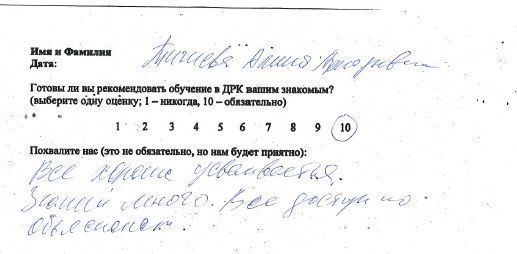 Имя и Фамилия
Дата:
Готовы ли вы рекомендовать обучение в ДРК вашим знакомым?
(выберите одну оценку; 1 – никогда, 10 – обязательно)
1 2 3 4 5 6 7 8 9 10
Похвалите нас (это не обязательно, но нам будет приятно):
Все хорошо усваивается.
Знаний много. Все доступно
объясняют.